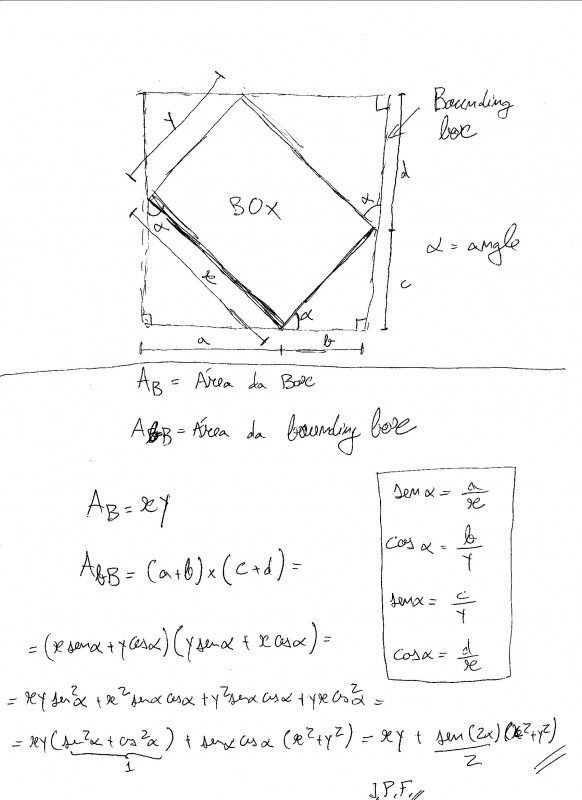 Bounding
box
y
d
α
BOX
α
α = angle
x
c
α
a
b
A_B = Área da Box
A_bB = Área da bounding box
A_B = xy
A_bB = (a+b)×(c+d) =
= (x senα + y cosα)(y senα + x cosα) =
= xy sen²α + x² senα cosα + y² senα cosα + yx cos²α =
= xy(sen²α + cos²α) + senα cosα (x²+y²) = xy + sen(2α)/2 (x²+y²)
1
senα = a/x
cosα = b/y
senα = c/y
cosα = d/x
J.P.F.